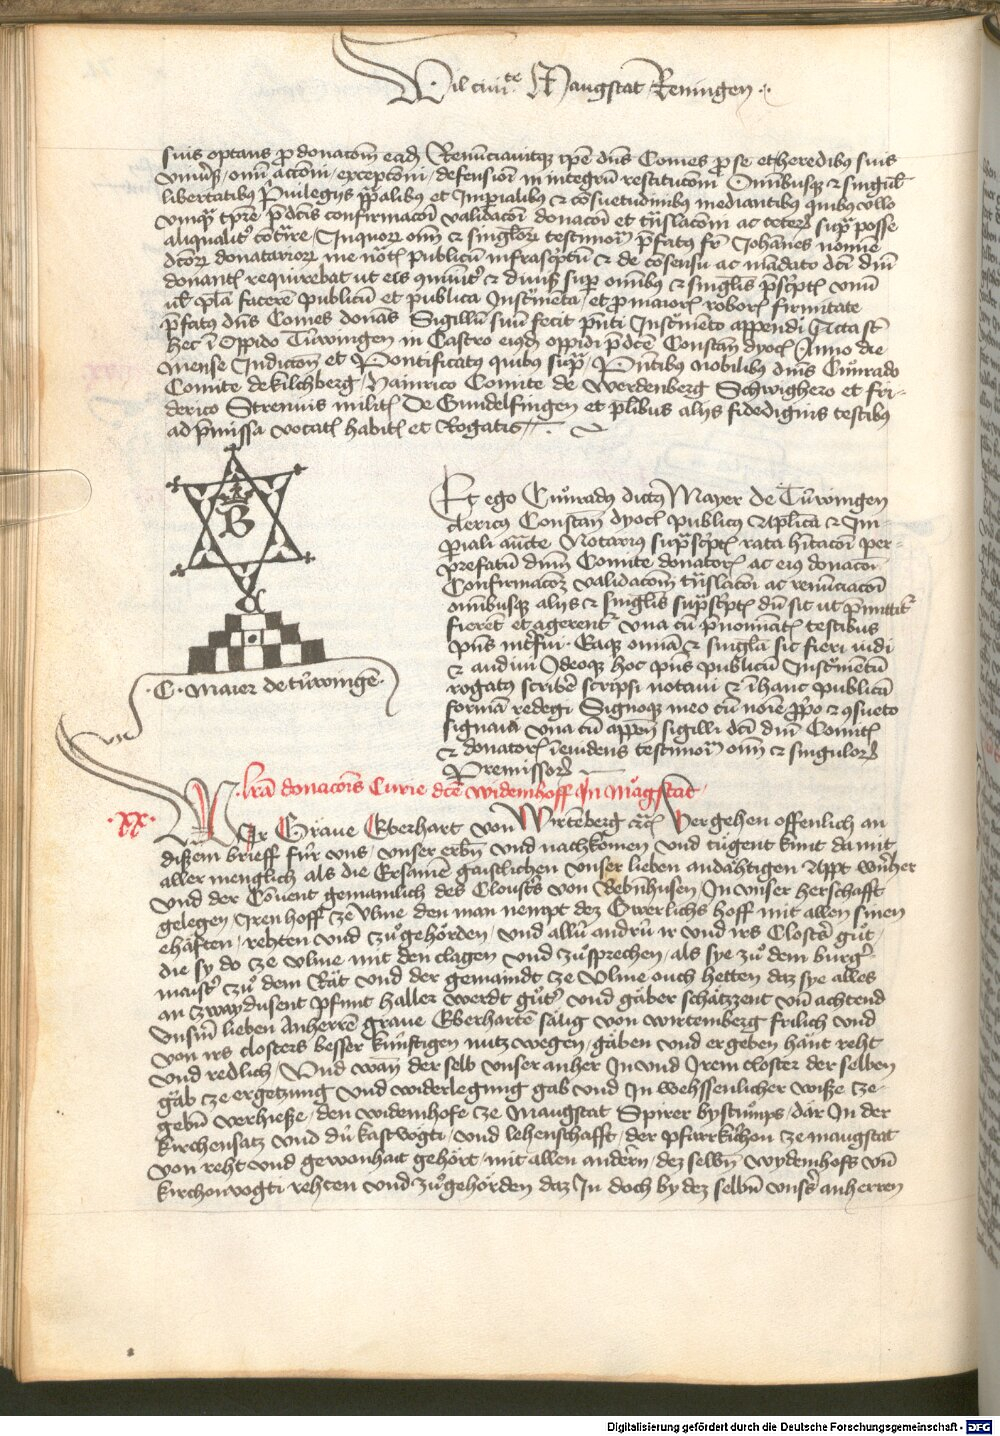 Wil ciuite Maugstat Reningen
suis optans p donacom̄ eadē Renūnciauitqz ipe dn̄s Comes p se et heredibus suis
vniu'sis om̄i accom̄ / excepcom̄ / defensiom̄ in integrū restitucom̄ Om̄ibusqz & singul'
libertatibus Priuilegijs ppalibus et Imperialibus & cōsuetudinibus mediantibus quibus vllo
vmqz tpre pdcīs confirmacom̄ validacom̄ donacom̄ et trāslacom̄ ac ceter' sup posse
aliqualit' cōtrare / In quor om̄ & singlor testimom̄ pfatus fr Johānes nomīe
dcōr donatarior me notm̄ publicum infrascptm̄ & de cōsensu ac mādato dcī dn̄i
donant' requirebat ut eis cōmunit' & diuis' sup om̄ibus & singlis pscpt' vnū
ul' pla facere publicum et publica Instrumēta / et p maiorē roboris firmitate
pfatus dn̄s Comes donās Sigillū suū fecit pnti Instrumēto appendi Acta st
hec ī Oppido Tüwingen in Castro eiusdē oppidi pdce Constan̄ dyoc' Anno die
mense Indictom̄ et Pontificatus quibus supra / Pntibus nobilibus dn̄is Cuonrado
Comite de kilchberg / Hainrico Comite de Werdenberg Schwighero et fri-
derico Strenuis milit' De Gundelfingen et plibus alijs fidedignis testibus
ad pmissa vocat' habit' et Rogatis
B
Et ego Cuonradus dictus Mayer de Tüwingen
clericus Constan̄ dyoc' publicus Aplica & Im-
periali aucte Notarius supscpt' rata hītacom̄ per-
prefatū dn̄m Comite donator' ac eius donacom̄
Confirmacom̄ validacom̄ trāslacom̄ ac renūnciacom̄
om̄ibusqz alijs & singlis supscpt' dū sic ut pmittit'
fierēt et agerent' vna cū pnomīat' testibus
pn̄s int'fui Eaqz om̄ia & singla sic fieri vidi
& audiui Ideoqz hoc pn̄s publicū Instrumētū
rogatus scribē scripsi notaui & ī hanc publicā
formā redegi Signoqz meo cū noīe ppo & cōsueto
signaui vna cū appen̄ sigilli dcī dn̄i Comit'
& donator' ī euidens testimom̄ om̄ & singulor'
Premissor'
·C· Maier de tüwingē·
lrā donacois Curie dce widemhoff In mǎgstat
·xx·
Wir Graue Eberhart von Wirtēberg &c Vergehen offenlich an
dißem brieff für vns / vnser erbn̄ vnd nachkomen vnd tügent kunt da mit
aller menglich als die Ersamē gaistlichen vnser lieben andähtigen Appt
vnd der Cōuent gemainlich des Closters von Bebn̄husen / In vnser herschafft
gelegen / Iren hoff ze vlme den man nempt dez hoff mit allen sinen
ehäften / rehten vnd zuogehörden / vnd allü andrü ir vnd irs Closters guot /
die sy do ze vlme mit den clagen vnd zuosprechen / als sye zuo dem burg'
maist' zuo dem Rät vnd der gemaindt ze Vlme ouch hetten daz sye alles
an zwaydusent pfunt haller werdt guot' vnd gäber schätzent vn̄ achtend
vnsm̄ lieben Anherrē graue Eberhartē sälig von wirtemberg frilich vnd
von irs closters besser künftigen nutz wegen / gäben vnd ergeben hänt reht
vnd redlich / Vnd wan̄ der selb vnser anher In vnd Irem closter der selben
gäb ze ergetzung vnd widerlegung gab vnd In wehssenlicher wiße ze
gebn̄ verhieße / den widemhofe ze Maugstat Spirer bystumps / där In der
kirchensatz vnd dü kastvogti / vnd lehenschafft / der pfarrkirchon ze maugstat
von reht vnd gewonhait gehört / mit allen andern / dez selbn̄ wydemhofs vn̄
kirchenvogti rehten vnd zuogehörden daz In doch by dez selbn̄ vnsers anherren
Digitalisierung gefördert durch die Deutsche Forschungsgemeinschaft - DFG